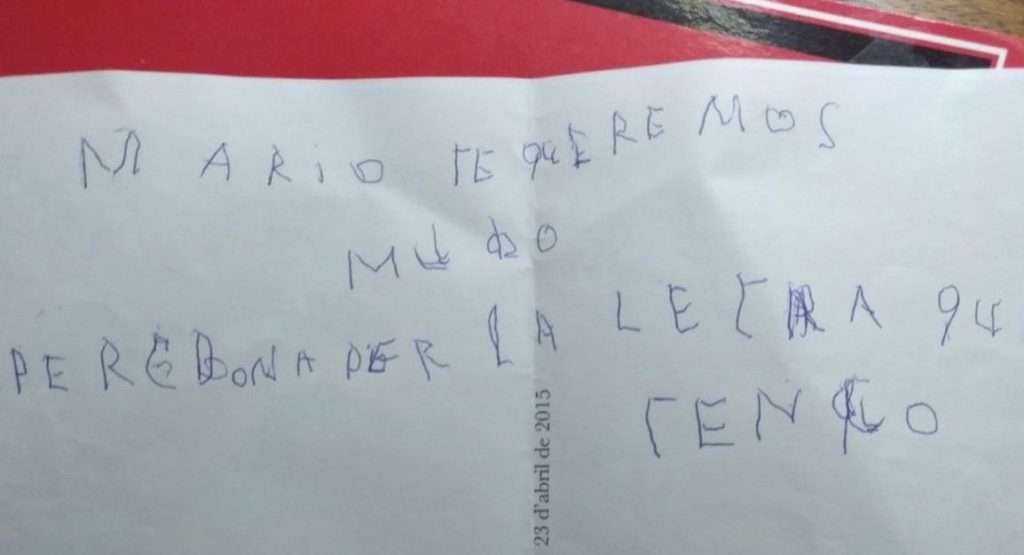 MARIO TE QUEREMOS
MUCHO
PEREDONA PER LA LETRA QU
TENGO
23 d'abril de 2015